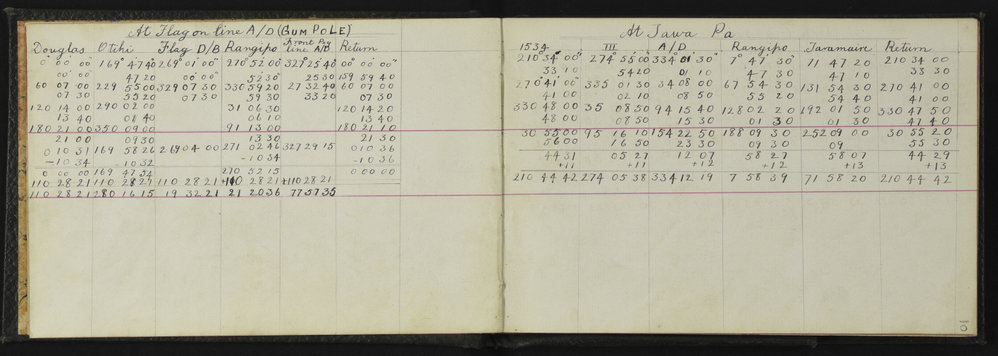 At Flag on line A/D (GUM POLE)
Douglas Otihi Flag D/B Rangipo Front Peg line A/B Return
0° 00' 00" 169° 47' 40" 269° 01' 00" 270° 52' 00" 327° 25' 40" 00° 00' 00"
00 00 47 20 00 00 52 30 25 30 159 59 40
60 07 00 229 55 00 329 07 30 330 59 20 27 32 40 60 07 00
07 30 55 20 07 30 59 30 33 20 07 30
120 14 00 290 02 00 31 06 30 120 14 20
13 40 08 40 06 10 13 40
180 21 00 350 09 00 91 13 00 180 21 10
21 00 09 30 13 30 21 30
0 10 31 169 58 26 269 04 00 271 02 46 327 29 15 0 10 36
-10 34 -10 32 -10 34 -10 36
0 00 00 169 47 54 270 52 15 0 00 00
110 28 21 110 28 27 110 28 21 +110 28 21 +110 28 21
110 28 21 280 16 15 19 32 21 21 20 36 77 57 35
At Tawa Pa
1534 III A/D Rangipo Taramaire Return
210° 34' 00" 274° 55' 00" 334° 01' 30" 7° 47' 30" 71 47 20 210 34 00
33 10 54 20 01 10 47 30 47 10 33 30
270 41 00 335 01 30 34 08 00 67 54 30 131 54 30 270 41 00
41 00 02 10 08 50 55 20 54 40 41 00
330 48 00 35 08 50 94 15 40 128 02 20 192 01 50 330 47 50
48 00 08 50 15 30 01 30 01 30 47 40
30 55 00 95 16 10 154 22 50 188 09 30 252 09 00 30 55 20
56 00 16 50 23 30 09 30 09 55 30
44 31 05 27 12 07 58 27 58 07 44 29
+11 +11 +12 +12 +13 +13
210 44 42 274 05 38 334 12 19 7 58 39 71 58 20 210 44 42